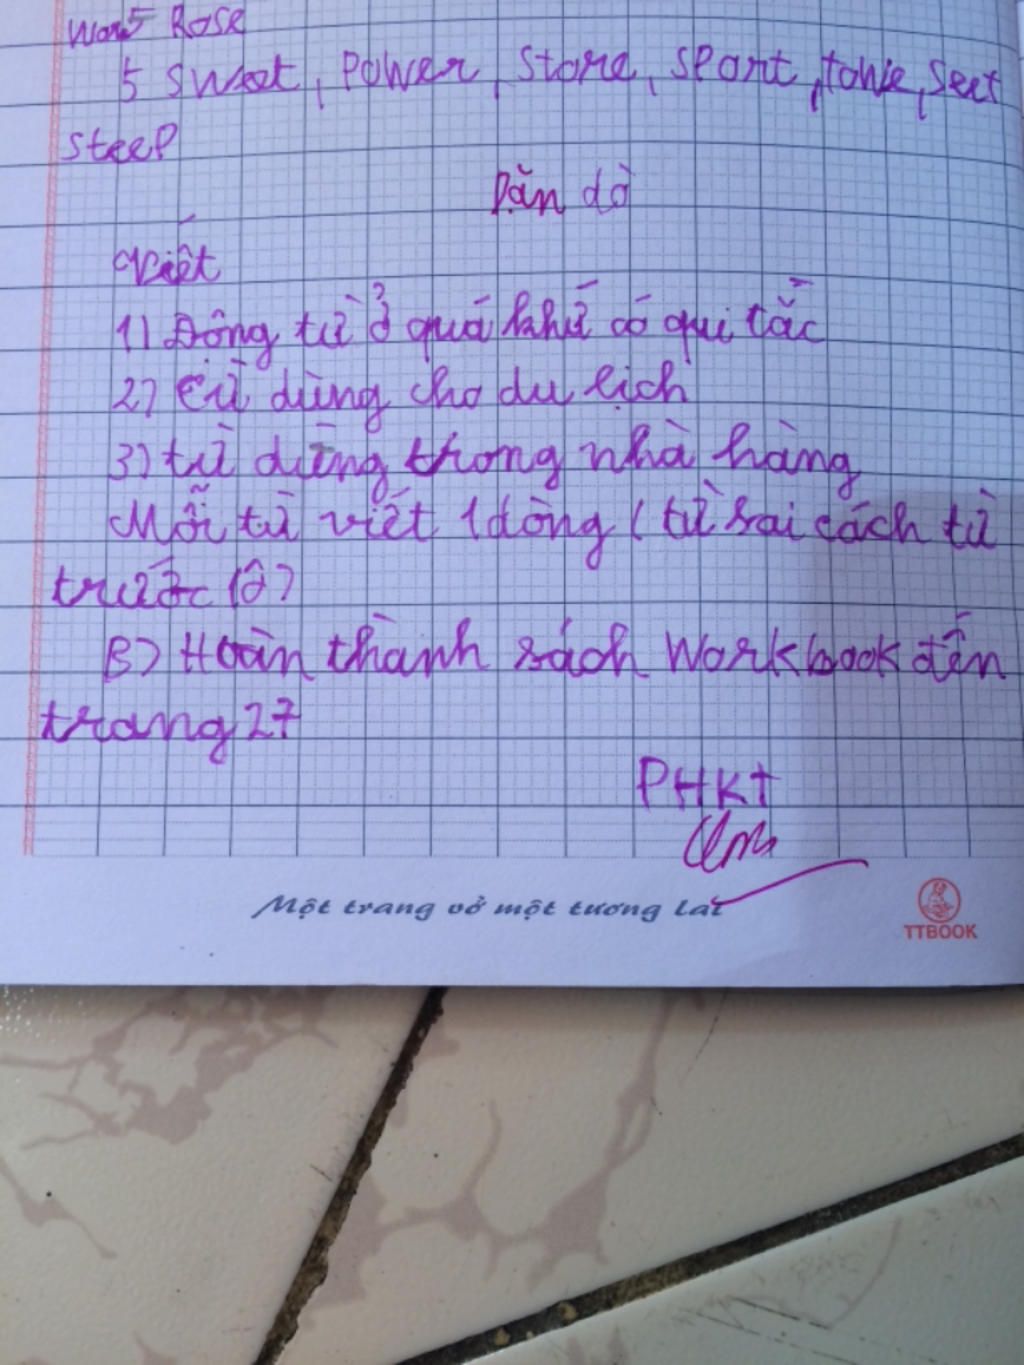 Rose
5 Sweet, Power, Store, sport, towe, Seet
steep
Dặn dò
Viết
1) Động từ ở quá khứ có qui tắc
2) từ dùng cho du lịch
3) từ dùng trong nhà hàng
Mỗi từ viết 1 dòng ( từ sai cách từ
trước 1ô)
B) Hoàn thành sách Workbook đến
trang 27
PHKT
Một trang vở một tương lai
TTBOOK